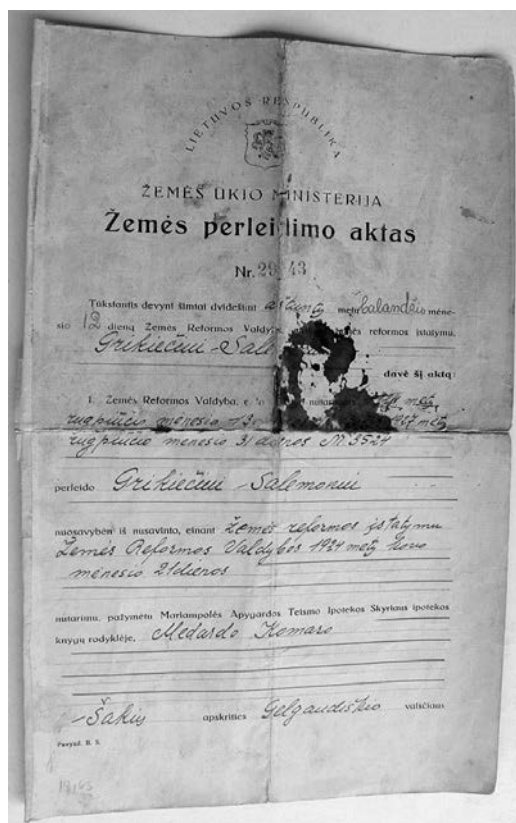 LIETUVOS RESPUBLIKA
ŽEMĖS ŪKIO MINISTERIJA
Žemės perlei imo aktas
Nr. 29 43
Tūkstantis devyni šimtai dvidešimt aštunų metų balandžio mėne-
sio 12 dieną Žemės Reformos Valdyba, reformos įstatymu,
Grikiečiui-Sale
davė šį aktą:
1. Žemės Reformos Valdyba,
rugpiūčio mėnesio 13 1927 metų
rugpiūčio mėnesio 31 dienos Nr. 3524
perleido Grikiečiui-Salemonui
nuosavybėn iš nusavinto, einant Žemės reformos įstatymu
Žemės Reformos Valdybos 1924 metų kovo
mėnesio 21 dienos
nutarimu, pažymėtu Mariampolės Apygardos Teismo Ipotekos Skyriaus ipotekos
knygų rodyklėje, Medardo Komaro
Šakių apskrities Gelgaudiškio valsčiaus
Pavyzd. B. 3.